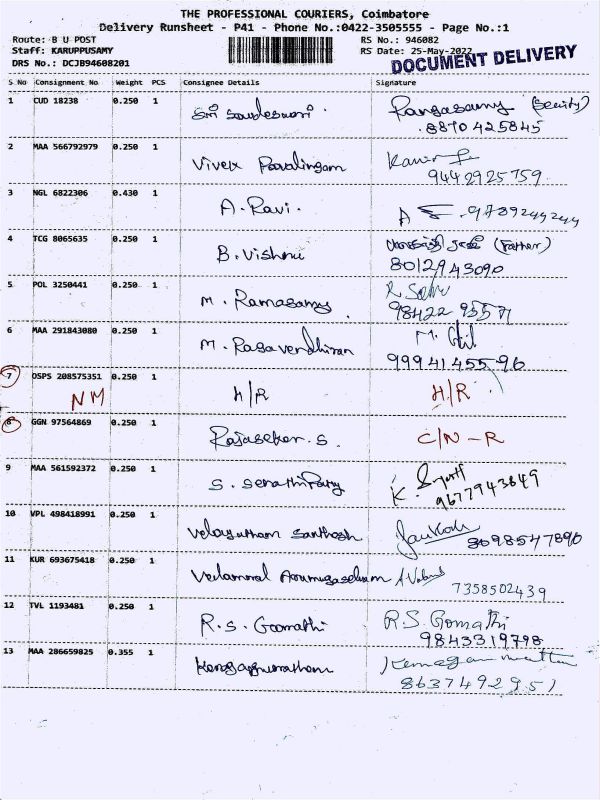 THE PROFESSIONAL COURIERS, Coimbatore
Delivery Runsheet - P41 - Phone No.:0422-3505555 - Page No.:1
Route: B U POST RS No.: 946082
Staff: KARUPPUSAMY RS Date: 25-May-2022
DRS No.: DCJB94608201 DOCUMENT DELIVERY
S No Consignment No Weight PCS Consignee Details Signature
1 CUD 18238 0.250 1 Sri Rangasamy (Security)
8870425845
2 MAA 566792979 0.250 1 Vivek
9442925759
3 NGL 6822306 0.430 1 A. Ravi. 9789244244
4 TCG 8065635 0.250 1 B. Vishnu (Father)
8012943090
5 POL 3250441 0.250 1 M. Ramasamy R
98422 95571
6 MAA 291843080 0.250 1 M. Ragavendhiran M.
9994145596
7 DSPS 208575351 0.250 1 H/R H/R
NM
8 GGN 97564869 0.250 1 Rajasekar. S. C/N-R
9 MAA 561592372 0.250 1 S. K.
9677943849
10 VPL 498418991 0.250 1 Velayutham Santhosh 8098547890
11 KUR 693675418 0.250 1 Velammal Arumugaselvam
7358502439
12 TVL 1193481 0.250 1 R.S. Gomathi R.S. Gomathi
9843319798
13 MAA 286659825 0.355 1
8637492951